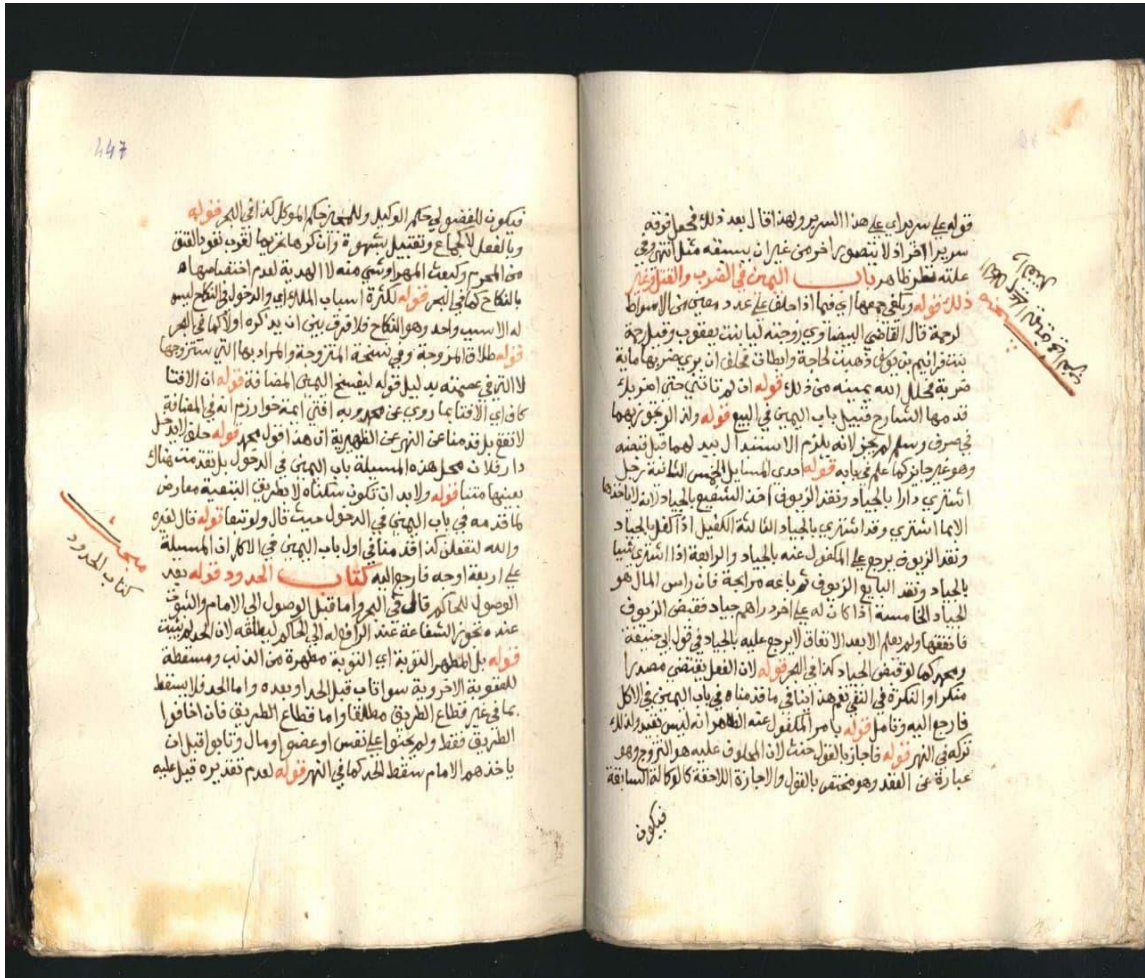 قوله على سرير اي على هذا السرير ولهذا قال بعد ذلك فجعل فوقه
سريرا اخر اذ لا يتصور اخر من غير ان يسبقه مثل انتهى وفي
علته نظر ظاهر باب اليمين في الضرب والقتل وغير
ذلك قوله ويكفي جمعها اي فيما اذا حلف على عدد معين من الاسواط
لرحمة قال القاضي البيضاوي زوجته ليا بنت يعقوب وقيل رحمة
بنت فراثيم بن يوسف ذهبت لحاجة وابطات فحلف ان بري ضربها ماية
ضربة فحلل الله يمينه من ذلك قوله ان لم تاتني حتى اضربك
قدمها الشارح قبيل باب اليمين في البيع قوله ولذا لو تجوز بهما
في صرف وسلم لم يجز لانه يلزم الاستبدال ببدلهما قبل قبضه
وهو غير جايز كما علم في بابه قوله احدى المسايل الخمس الثانية رجل
اشتري دارا بالجياد ونقد الزيوف اخذ الشفيع بالجياد لانه لا ياخذها
الا بما اشتري وقد اشتري بالجياد الثالثة الكفيل اذا كفل بالجياد
ونقد الزيوف يرجع على المكفول عنه بالجياد والرابعة اذا اشتري شيا
بالجياد ونقد البايع الزيوف ثم باعه مرابحة فان راس المال هو
الجياد الخامسة اذا كان له على اخر دراهم جياد فقبض الزيوف
فانفقها ولم يعلم الا بعد الانفاق لا يرجع عليه بالجياد في قول ابي حنيفة
ومحمد كما لو قبض الجياد كذا في البحر قوله لان الفعل يقتضي مصدرا
منكرا والنكرة في النفي تعم هذا ينافي ما قدمناه في باب اليمين في الاكل
فارجع اليه وتامل قوله بامر المكفول عنه الظاهر انه ليس بقيد ولذلك
تركه في النهر قوله فاجاز بالقول حنث لان المحلوف عليه هو التزوج وهو
عبارة عن العقد وهو مختص بالقول والاجازة اللاحقة كالوكالة السابقة
فيكون
مبحث
اليمين في الضرب والقتل
447
فيكون للفضولي حكم الوكيل وللمجيز حكم الموكل كذا في البحر قوله
وبالفعل لا كجماع وتقبيل بشهوة وان كرها تحريما لقرب نفود العتق
من المحرم وكبعث المهر او شي منه لا الهدية لعدم اختصاصها
بالنكاح كما في البحر قوله لكثرة اسباب الملك اي والدخول في النكاح ليس
له الا سبب واحد وهو النكاح فلا فرق بين ان يذكره او لا كما في البحر
قوله طلاق المزوجة وفي نسخة المتزوجة والمراد بها التي ستزوجها
لا التي في عصمته بدليل قوله ليفسخ اليمين المضافة قوله ان الافتا
كاف اي الافتا بما روي عن محمد وبه افتى ايمة خوارزم انه في المضافة
لا تقع بل قدمنا عن النهر عن الظهيرية ان هذا قول محمد قوله حلف لا يدخل
دار فلان محل هذه المسيلة باب اليمين في الدخول بل تقدمت هناك
بعينها متنا قوله ولا بد ان تكون سكناه لا بطريق التبعية معارض
لما قدمه في باب اليمين في الدخول حيث قال ولو تبعا قوله قال لغيره
والله لتفعلن كذا قدمنا في اول باب اليمين في الاكل ان المسيلة
على اربعة اوجه فارجع اليه كتاب الحدود قوله بعد
الوصول للحاكم قال في البحر واما قبل الوصول الى الامام والثبوت
عنده تجوز الشفاعة عند الرافع له الى الحاكم ليطلقه لان الحد لم يثبت
قوله بل المطهر التوبة اي التوبة مطهرة من الذنب ومسقطة
للعقوبة الاخروية سوا تاب قبل الحد او بعده واما الحد فلا يسقط
بما في غير قطاع الطريق مطلقا واما قطاع الطريق فان اخافوا
الطريق فقط ولم يجنوا على نفس او عضو او مال وتابوا قبل ان
ياخذهم الامام سقط الحد كما في النهر قوله لعدم تقديره قيل عليه
مبحث
كتاب الحدود